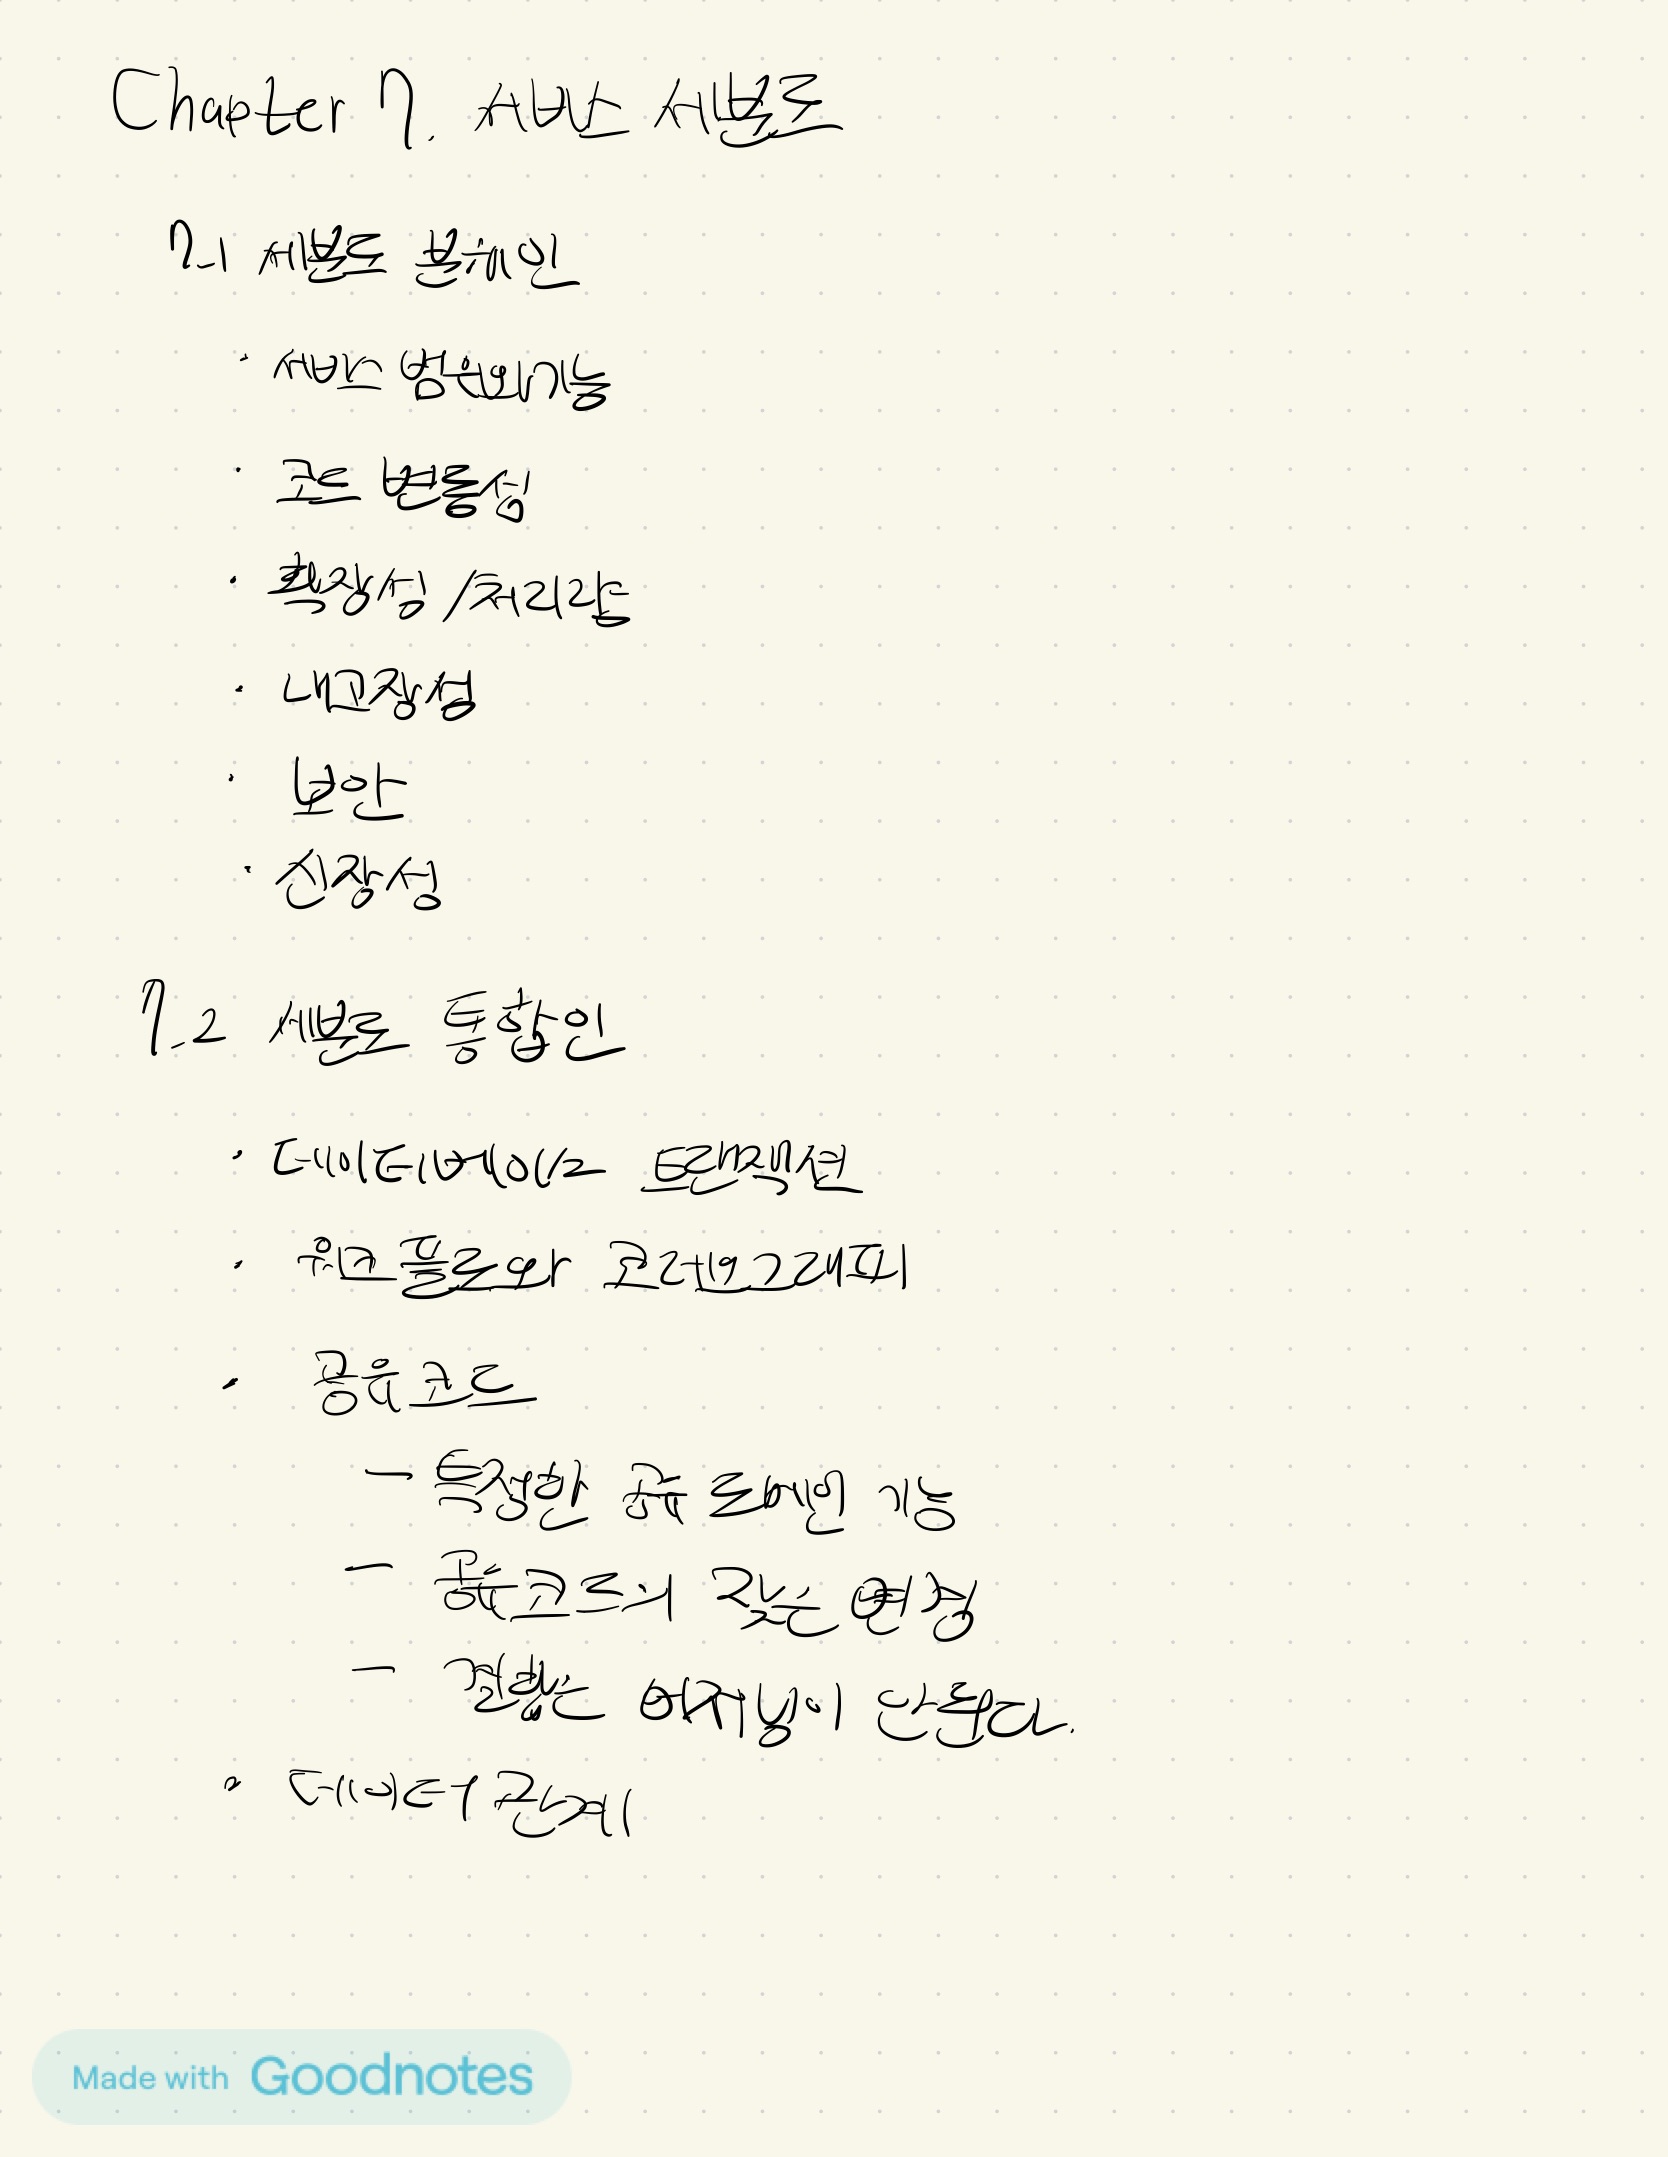 Chapter 7. 서비스 세분도
7-1 세분도 분해인
· 서비스 범위와 기능
· 코드 변동성
· 확장성 / 처리량
· 내고장성
· 보안
· 신장성
7-2 세분도 통합인
· 데이터베이스 트랜잭션
· 워크플로와 코레오그래피
· 공유 코드
- 특정한 공유 도메인 기능
- 공유 코드의 잦은 변경
- 결함은 버저닝이 안된다.
· 데이터 관계
Made with Goodnotes